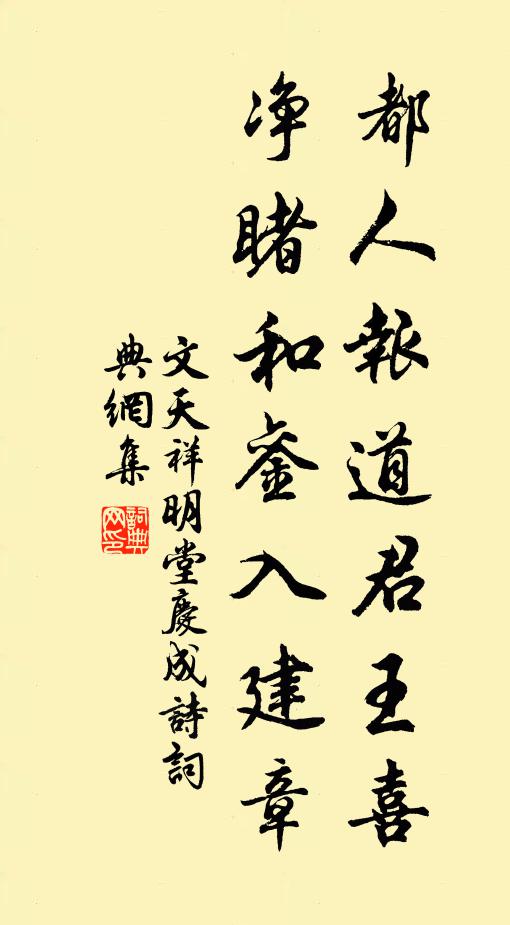 都人報道君王喜
净睹和銮入建章
文天祥明堂慶成詩詞
典網集
詞典
网印